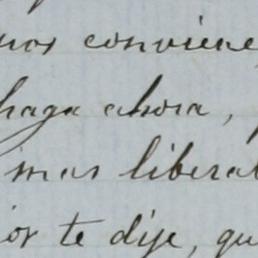 nos conviene
haga ahora,
mas liberal
te dije, qu